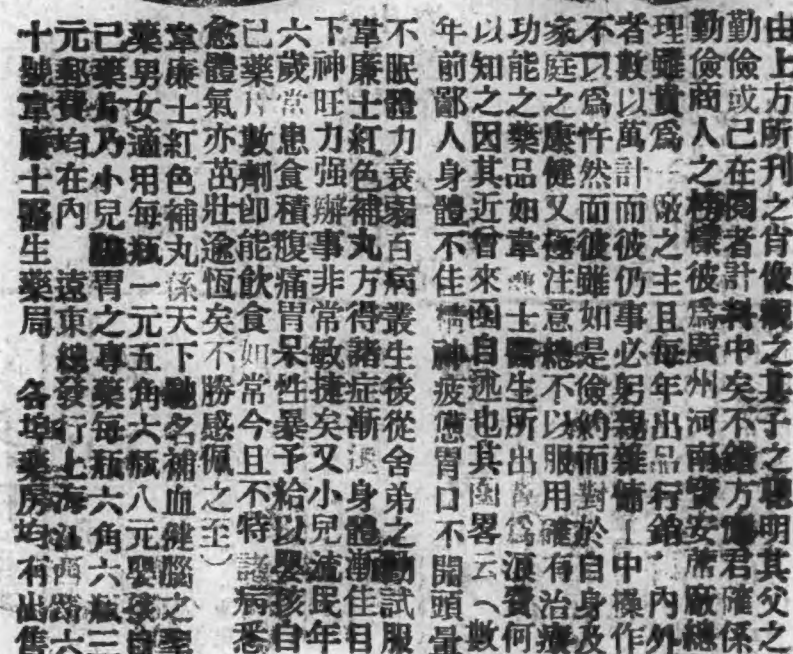 由上方所刊之肖像觀之其子之聰明其父之
勤儉或已在閱者計料中矣不錯方君確係
勤儉商人之榜樣彼爲廣州河南寶安蓆廠總
理雖貴爲一廠之主且每年出品行銷內外
者數以萬計而彼仍事必躬親雜傭工中操作
不以爲怍然而彼雖如是儉約而對於自身及
家庭之康健又極注意總不以服用確有治療
功能之藥品如韋廉士醫生所出者爲浪費何
以知之因其近曾來函自述也其函畧云（數
年前鄙人身體不佳精神疲倦胃口不開頭暈
不眠體力衰弱百病叢生後從舍弟之勸試服
韋廉士紅色補丸方得諸症漸退身體漸佳目
下神旺力强辦事非常敏捷矣又小兒 民年
六歲常患食積腹痛胃呆性暴予給以嬰孩自
己藥片數劑卽能飲食如常今且不特諸病悉
愈體氣亦茁壯逾恆矣不勝感佩之至）
韋廉士紅色補丸係天下馳名補血健腦之聖
藥男女適用每瓶一元五角六瓶八元嬰孩自
己藥片乃小兒腸胃之專藥每瓶六角六瓶三
元郵費均在內　遠東總發行上海江西路六
十號韋廉士醫生藥局　各埠藥房均有出售